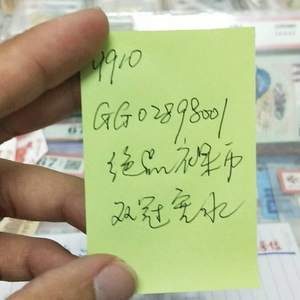 9910
GG02898001
绝品裸币
双冠宽水